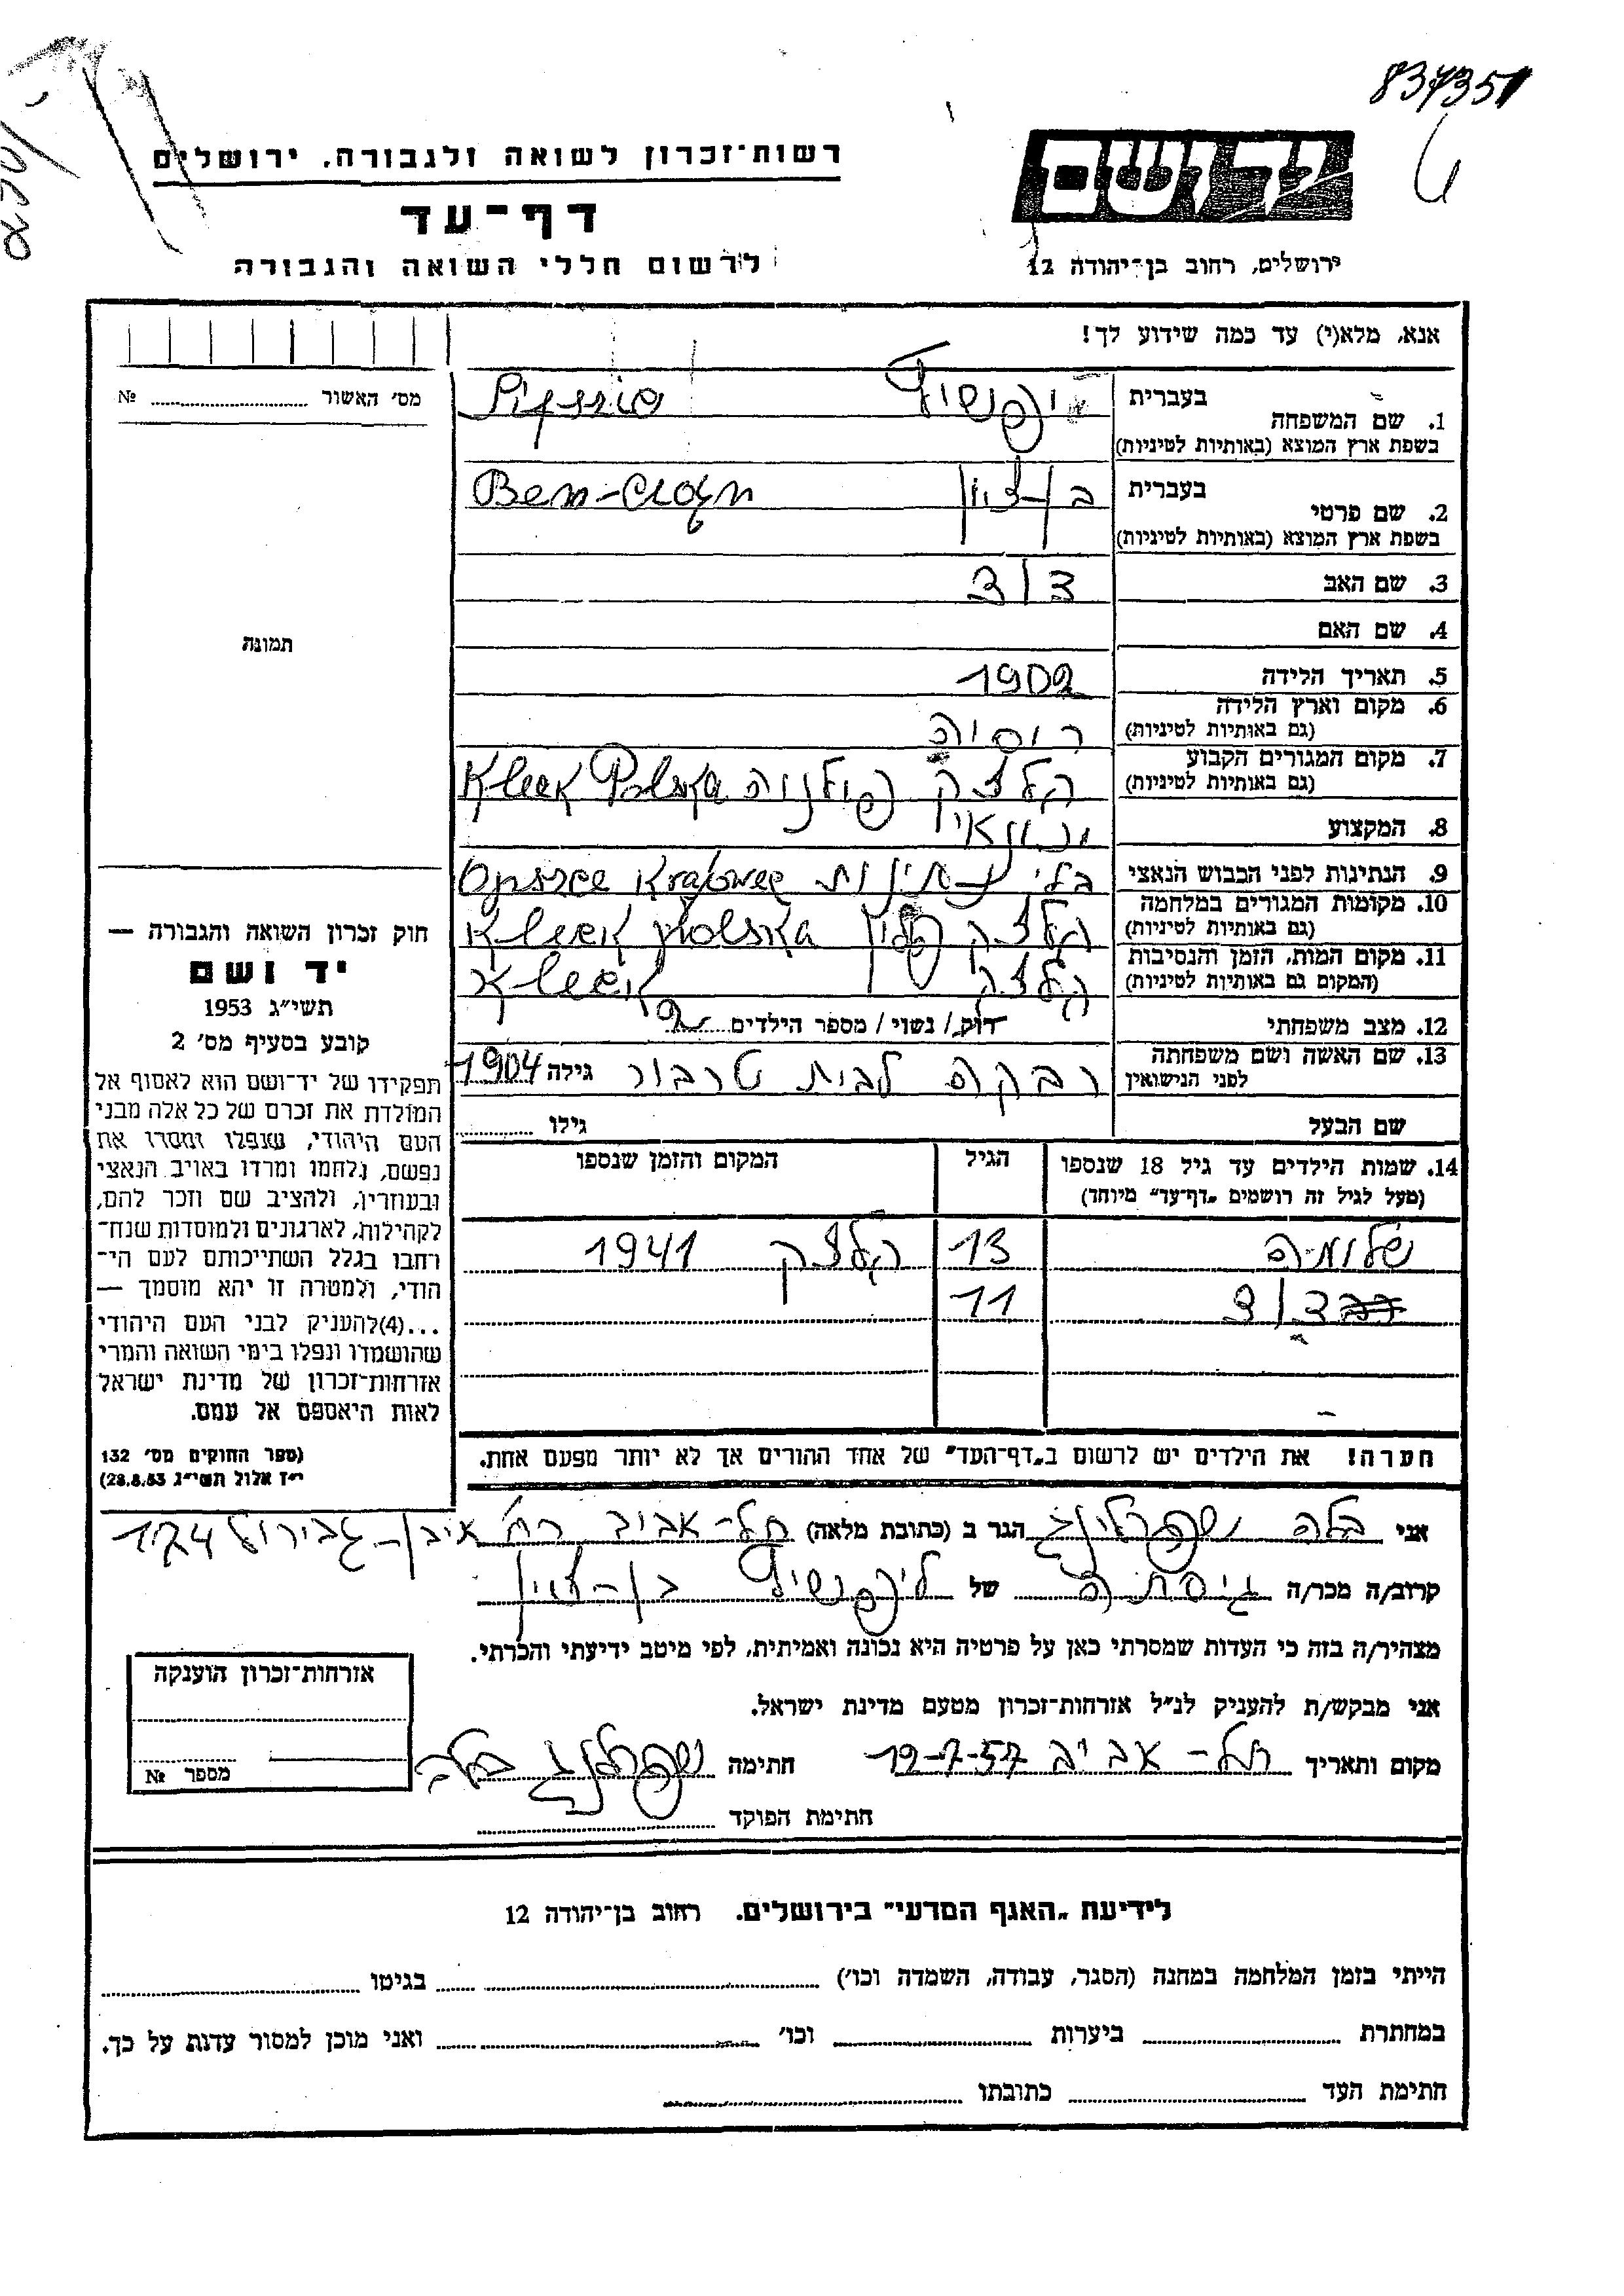 837351
רשות־זכרון לשואה ולגבורה, ירושלים
יד ושם
דף־עד
לרשום חללי השואה והגבורה
ירושלים, רחוב בן־יהודה 12
אנא, מלא(י) עד כמה שידוע לך!
מס׳ האשור № 
1. שם המשפחה בעברית
בשפת ארץ המוצא (באותיות לטיניות)
2. שם פרטי בעברית בן-ציון Ben-Cyjon
בשפת ארץ המוצא (באותיות לטיניות)
3. שם האב דוד
4. שם האם
תמונה
5. תאריך הלידה 1902
6. מקום וארץ הלידה רוסיה
(גם באותיות לטיניות)
7. מקום המגורים הקבוע קלצק פולניה Kleck Polska
(גם באותיות לטיניות)
8. המקצוע
9. הנתינות לפני הכבוש הנאצי בלי נתינות
10. מקומות המגורים במלחמה קלצק פולין Kleck
(גם באותיות לטיניות)
11. מקום המות, הזמן והנסיבות קלצק Kleck
(המקום גם באותיות לטיניות)
12. מצב משפחתי רווק / נשוי / מספר הילדים 2
13. שם האשה ושם משפחתה רבקה לבית טרבור גילה 1904
לפני הנישואין
שם הבעל גילו
חוק זכרון השואה והגבורה —
יד ושם
תשי״ג 1953
קובע בסעיף מס׳ 2
תפקידו של יד־ושם הוא לאסוף אל
המולדת את זכרם של כל אלה מבני
העם היהודי, שנפלו ומסרו את
נפשם, נלחמו ומרדו באויב הנאצי
ובעוזריו, ולהציב שם וזכר להם,
לקהילות, לארגונים ולמוסדות שנח־
רבו בגלל השתייכותם לעם הי־
הודי, ולמטרה זו יהא מוסמך —
...(4)להעניק לבני העם היהודי
שהושמדו ונפלו בימי השואה והמרי
אזרחות־זכרון של מדינת ישראל
לאות היאספם אל עמם.
(ספר החוקים מס׳ 132
י״ז אלול תשי״ג 28.8.53)
14. שמות הילדים עד גיל 18 שנספו הגיל המקום והזמן שנספו
(מעל לגיל זה רושמים „דף־עד״ מיוחד)
שלומית 13 קלצק 1941
דוד 11
הערה! את הילדים יש לרשום ב„דף־העד״ של אחד ההורים אך לא יותר מפעם אחת.
אני בלה שפרלינג הגר ב (כתובת מלאה) תל-אביב רח׳ איבן-גבירול 174
קרוב/ה מכר/ה גיסתה של ליפשיץ בן-ציון
מצהיר/ה בזה כי העדות שמסרתי כאן על פרטיה היא נכונה ואמיתית, לפי מיטב ידיעתי והכרתי.
אני מבקש/ת להעניק לנ״ל אזרחות־זכרון מטעם מדינת ישראל.
מקום ותאריך תל-אביב 19-7-57 חתימה שפרלינג בלה
חתימת הפוקד
אזרחות־זכרון הוענקה
מספר №
לידיעת „האגף המדעי״ בירושלים. רחוב בן־יהודה 12
הייתי בזמן המלחמה במחנה (הסגר, עבודה, השמדה וכו׳) בגיטו
במחתרת ביערות וכו׳ ואני מוכן למסור עדות על כך.
חתימת העד כתובתו